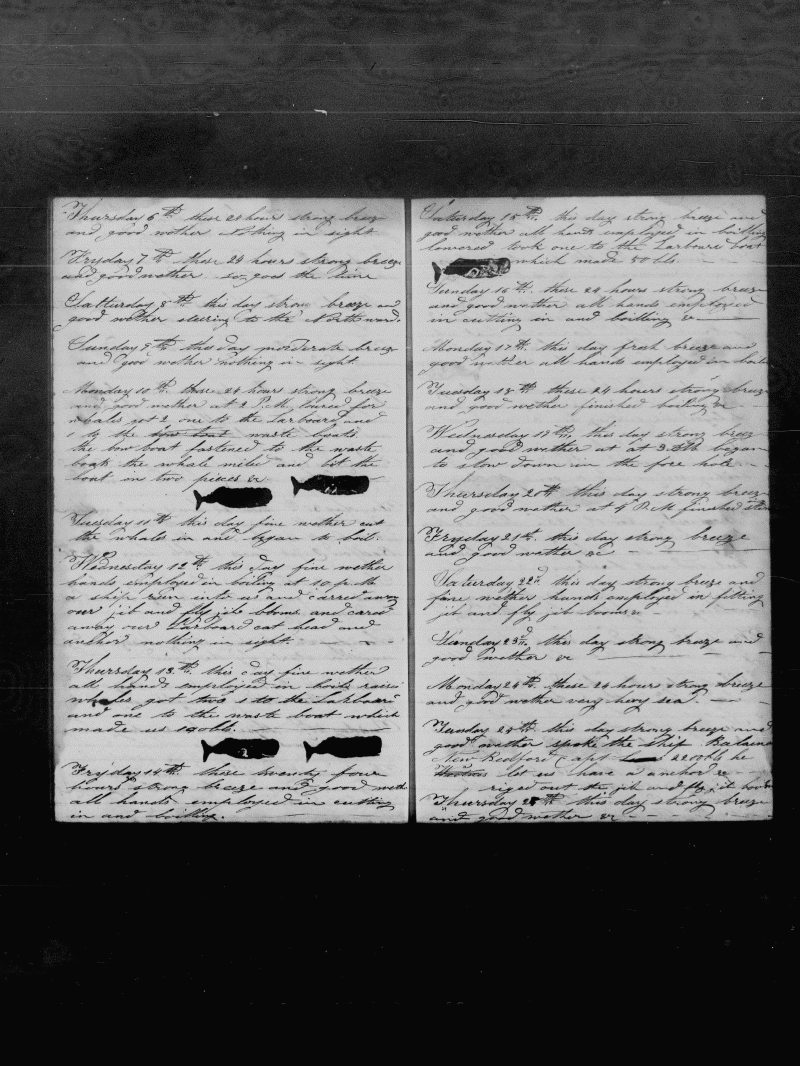 Thursday 6th these 24 hours strong breze
and good wether nothing in sight
Fryday 7th these 24 hours strong breze
and good wether so goes the time
Satturday 8th this day strong breeze and
good wether steering to the Northward.
Sunday 9th this day moderate breeze
and good wether nothing in sight.
Monday 10th these 24 hours strong breeze
and good wether at 2 P.M. loured for
whales got 2, one to the Larboard and
1 to the bow boat waste boats
the bow boat fastened to the waste
boats the whale and bit the
boat in two pieces &c
Tuesday 11th this day fine wether cut
the whale in and began to boil.
Wednesday 12th this day fine wether
hands employed in boiling at 10 p.m
a ship run into us and carried away
our jib and fly jib boms and carred
away our Larboard cat head and
anchor nothing in sight.
Thursday 13th this day fine wether
all hands employed in raised
whales got two 1 to the Larboard
and one to the waste boat which
made us bbls.
Fryday 14th these twenty four
hours strong breeze and good wether
all hands employed in cutting
in and boilling.
Saturday 15th this day strong breeze and
good wether all hands employed in boilling
lowered took one to the Larboard boat
which made bbls
Sunday 16th these 24 hours strong breeze
and good wether all hands employed
in cutting in and boilling &c
Monday 17th this day fresh breeze and
good wether all hands employed in
Tuesday 18th these 24 hours strong breeze
and good wether finished boiling &c
Wednesday 19th this day strong breeze
and good wether at at began
to stow down in the fore hole
Thursday 20th this day strong breeze
and good wether at 4 P.M finished
Fryday 21st this day strong breeze
and good wether &c
Saturday 22n this day strong breeze and
fare wether hands employed in fitting
jib and fly jib booms
Sunday 23n this day strong breeze and
good wether &c
Monday 24th these 24 hours strong breeze
and good wether very hevy sea
Tuesday 25th this day strong breeze and
good wether spoke the ship
New Bedford Capt 2200bbls he
let us have a anchor &c
riged out the jib and fly jib boom
Thursday this day strong breeze
and good wether &c